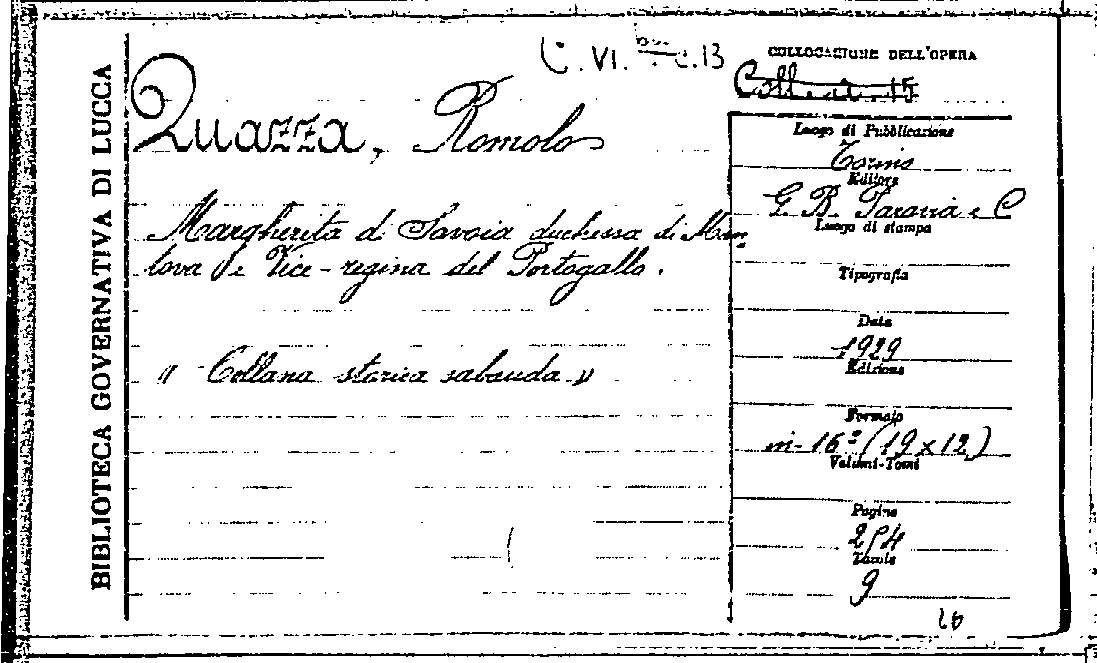 BIBLIOTECA GOVERNATIVA DI LUCCA
C. VI. C. 13
COLLOCAZIONE DELL'OPERA
Coll. 15
Quazza, Romolo
Margherita di Savoia duchessa di Man
tova e Vice-regina del Portogallo.
" Collana storica sabauda "
Luogo di Pubblicazione
Torino
Editore
G. B. Paravia e C
Luogo di stampa
Tipografia
Data
1929
Edizione
Formato
in-16° (19 x 12)
Volumi-Tomi
Pagine
254
Tavole
9
26